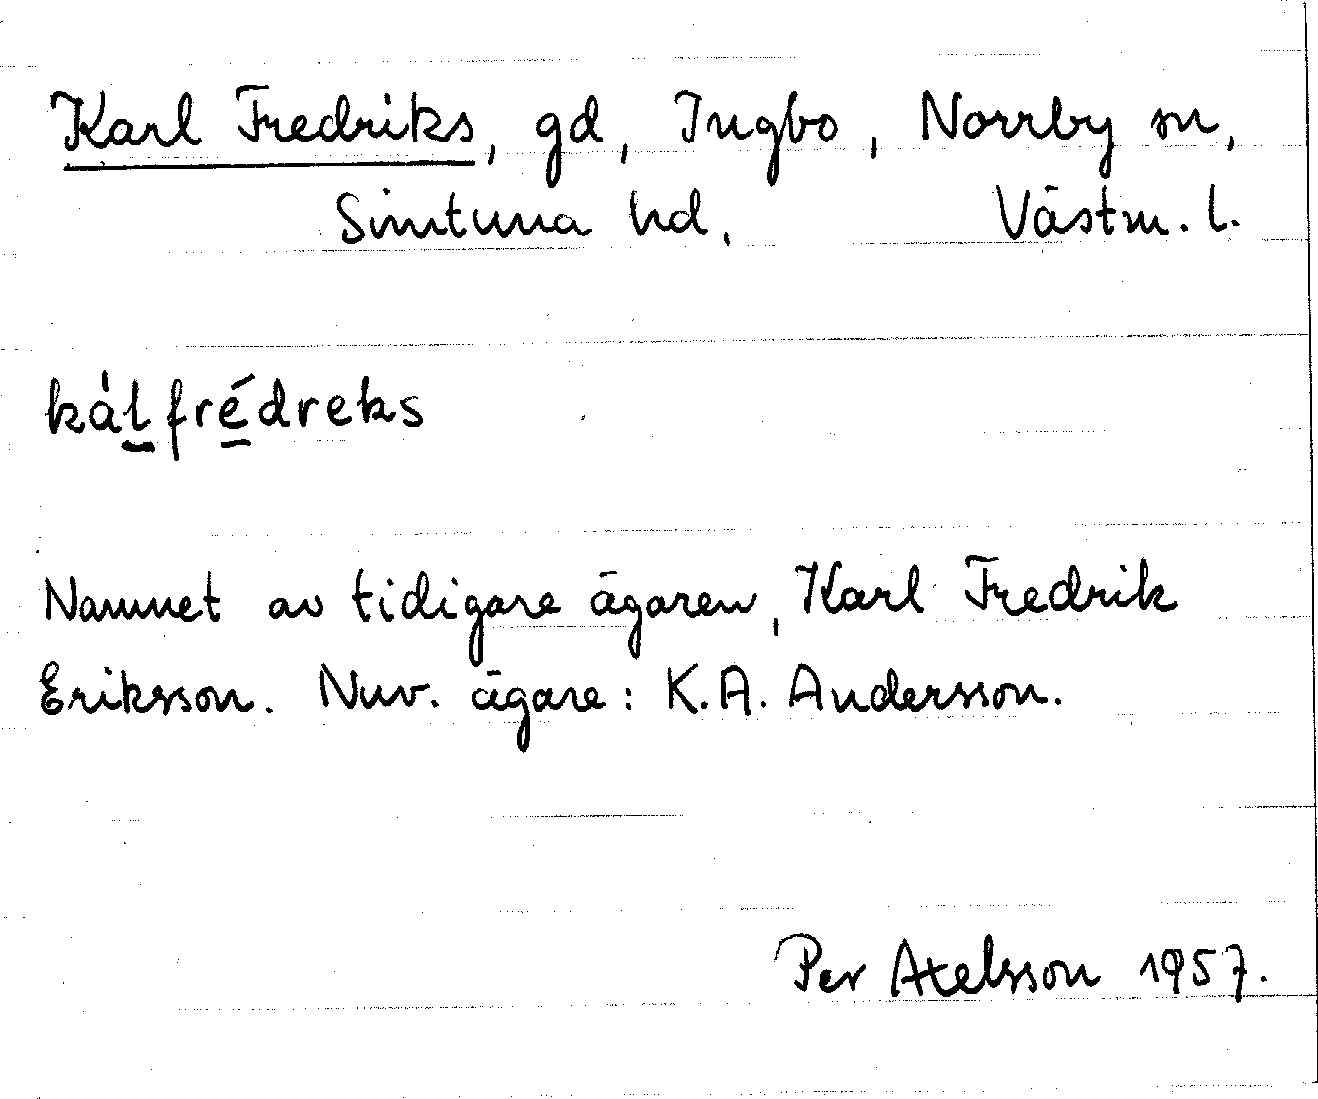 Karl Fredriks, gd, Ingbo, Norrby sn,
Simtuna hd. Västm. l.
kàl̠fré̠dreks
Namnet av tidigare ägaren, Karl Fredrik
Eriksson. Nuv. ägare: K.A. Andersson.
Per Axelsson 1957.